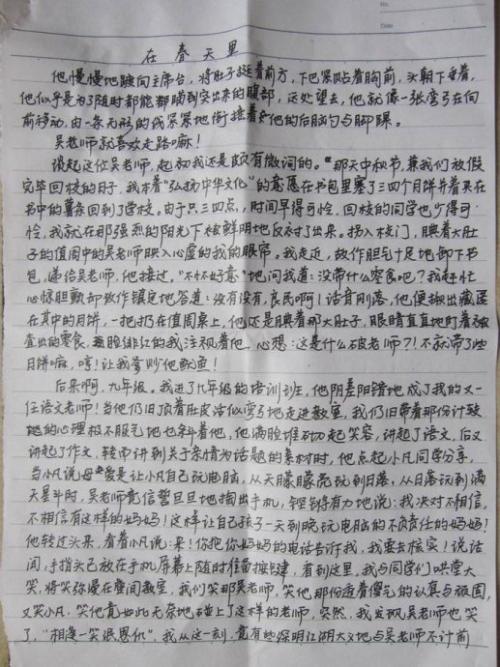 No.
Date
在春天里
他慢慢地踱向主席台,将肚子挺着前方,下巴紧贴着胸前,头朝下垂着,
他似乎是为了随时都能瞄到突出来的腹部,远处望去,他就像一张弯弓在向
前移动,由一条无形的线紧紧地衔接着他的后脑勺与脚踝。
吴老师就喜欢走路嘛!
谈起这位吴老师,起初我还是颇有微词的。那天中秋节,兼我们放假
完毕回校的日子,我本着"弘扬中华文化"的意愿在书包里塞了三四个月饼并着夹在
书中的薯条回到了学校。由于只三四点,时间早得可怜,回校的同学也少得可
怜,我就在那强烈的阳光下极鲜明地反衬了出来。拐入校门,腆着大肚
子的值周中的吴老师映入心虚的我的眼帘。我走近,故作胆气十足地卸下书
包,递给吴老师,他接过,"不怀好意"地问我道:没带什么零食吧?我赶忙
心惊胆颤却故作镇定地答道:没有没有,良民啊!话音刚落,他便揪出藏匿
在其中的月饼,一把扔在值周桌上,他还是腆着那大肚子,眼睛直直地盯着被
查出的零食,脸绯红的我注视着他,心想:这是什么破老师?!不就带了些
月饼嘛,哼!让我掌炒他鱿鱼!
后来啊,九年级。我进了九年级的培训班,他阴差阳错地成了我的又一
任语文老师!当他仍旧顶着肚皮活似弯弓地走进教室,我们仍旧带着那份计较
她的心理极不服气地也斜着他,他满脸堆砌起笑容,讲起了语文,后又
讲起了作文,转申讲到关于亲情为话题的素材时,他点起小凡同学分享,
当小凡说母爱是让小凡自己玩电脑,从天朦朦亮玩到日落,从日落玩到满
天星斗时,吴老师竟信誓旦旦地掏出手机,铿锵有力地说:我决对不相信,
不相信有这样的妈妈!这样让自己孩子一天到晚玩电脑的不负责任的妈妈!
他转过头来,看着小凡说:来!你把你妈妈的电话告诉我,我要去核实!说话
间,手指头已放在手机屏幕上随时准备按键,看到这里,我与同学们哄堂大
笑,将笑弥漫在整间教室,我们笑那吴老师,笑他那份透着傻气的认真与顽固,
又笑小凡,笑他竟如此无奈地碰上了这样的老师,突然,我发现吴老师也笑
了,"相逢一笑泯恩仇",我从这一刻,竟有些深明江湖大义地与吴老师不计前